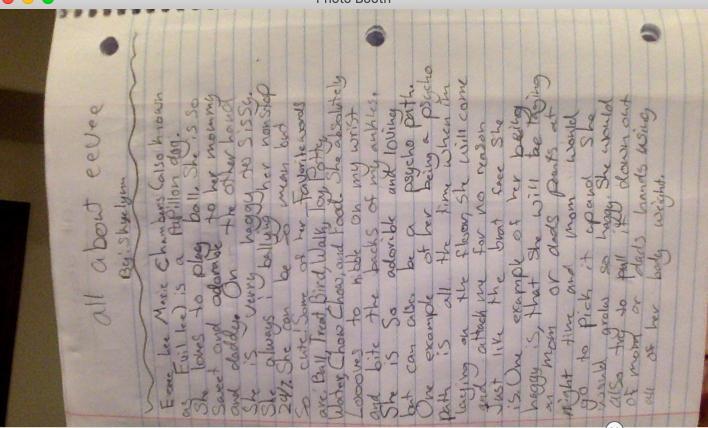 Photo Booth
all about eevee
By: Shyelynn
Evee Lee Marie Chambers (also known
as Evil Lee) is a Papillon dog.
She loves to play ball. She is so
Sweet and adorable to her mommy
and daddy. On the other hand
She is verry haggy to Sissy.
She always is bullying her nonstop
24/7. She can be so mean but
So cute! Some of her Favorite words
are, Ball, Treat, Bird, Walk, Toy, Potty,
Water, Chow Chow, and Food. She absolutely
Loooves to nibble on my wrist
and bite the backs of my ankles.
She is So adorible and loving
but can also be a psycho path.
One example of her being a psycho
Path is all the time when im
laying on the floor, She will come
and attack me for no reason
Just like the brat face She
is. One example of her being
haggy is, that She will be laying
on mom or dads pants at
night time and mom would
go to pick it up and She
would growl so haggy. She would
also try to pull it down out
of mom or dads hands using
all of her body weight.